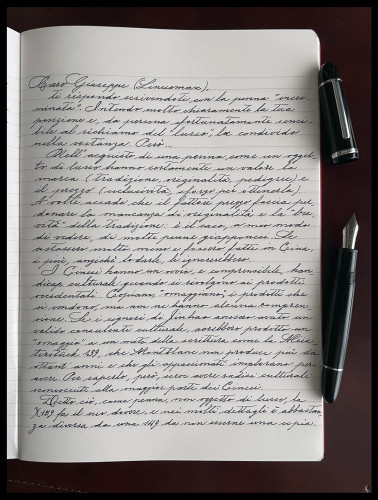 Caro Giuseppe (Linuxman),
ti rispondo scrivendoti con la penna "incri-
minata". Intendo molto chiaramente la tua
posizione e, da persona fortunatamente sensi-
bile al richiamo del "lusso", la condivido
nella sostanza. Però...
Nell'acquisto di una penna come un ogget-
to di lusso hanno certamente un valore la
marca (tradizione, originalità, pedigree) e
il prezzo (esclusività, sforzo per ottenerla).
A volte accade che il fattore prezzo faccia per-
donare la mancanza di originalità e la "bre-
vità" della tradizione: è il caso, a mio modo
di vedere, di molte penne giapponesi. Se
costassero molto meno e fossero fatte in Cina,
i più, anziché lodarle, le ignorerebbero.
I Cinesi hanno un ovvio, e comprensibile, han-
dicap culturale quando si rivolgono ai prodotti
occidentali. Copiano, "omaggiano", i prodotti che
si vendono, ma non ne hanno alcuna compren-
sione. Se i signori di Jinhao avessero avuto un
valido consulente culturale, avrebbero prodotto un
"omaggio" a un mito della scrittura come la Meis-
terstück 139, che Montblanc non produce più da
ottant'anni e che gli appassionati implorano per
avere. Per saperlo, però, serve avere radici culturali
sconosciute alla maggior parte dei Cinesi.
Detto ciò, come penna, non oggetto di lusso, la
X159 fa il suo dovere, e nei molti dettagli è abbastan-
za diversa da una 149 da non esserne una copia.